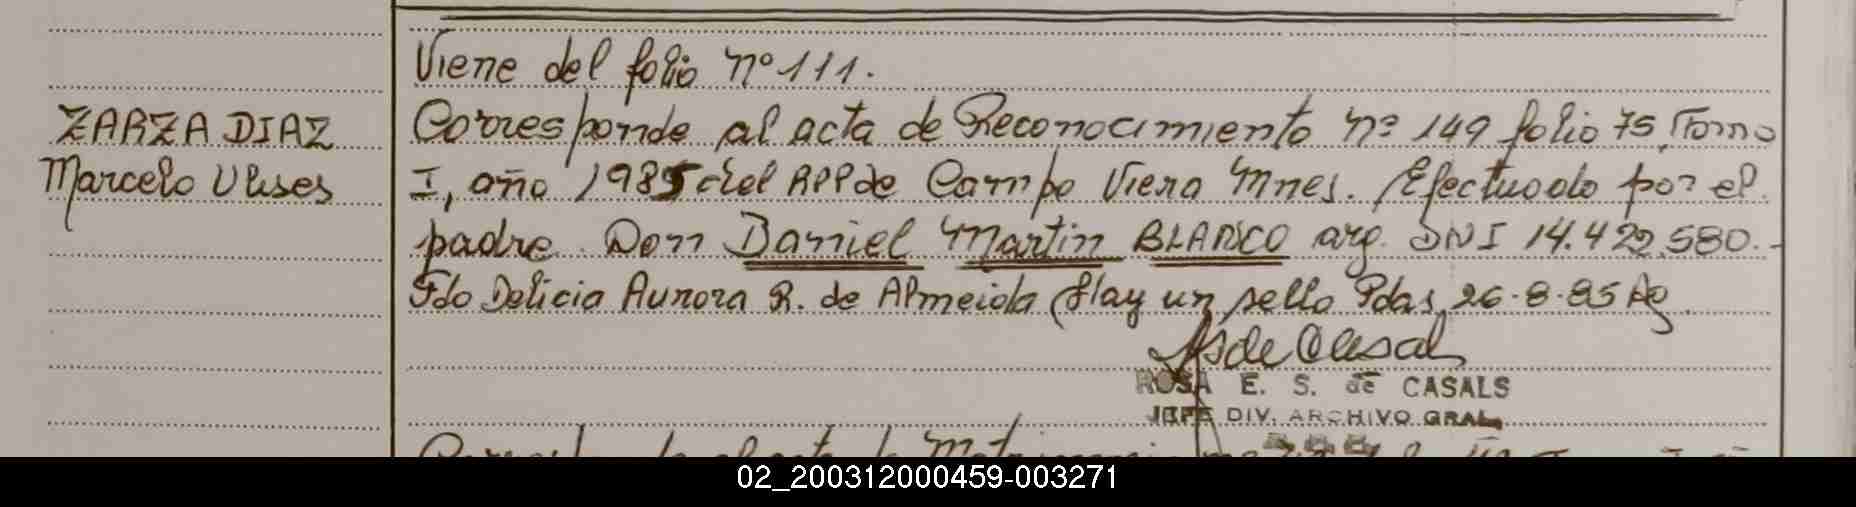 Viene del folio nº 111.
ZARZA DIAZ
Marcelo Ulises
Corresponde al acta de Reconocimiento nº 149 folio 75, Tomo
I, año 1985 del RPP de Campo Viera Mnes. Efectuado por el
padre Don Daniel Martin BLANCO arg. DNI 14.422.580.-
Fdo Delicia Aurora R. de Almeida (Hay un sello Pdas, 26-8-85
de Casals
ROSA E. S. de CASALS
JEFE DIV. ARCHIVO GRAL.
02_200312000459-003271